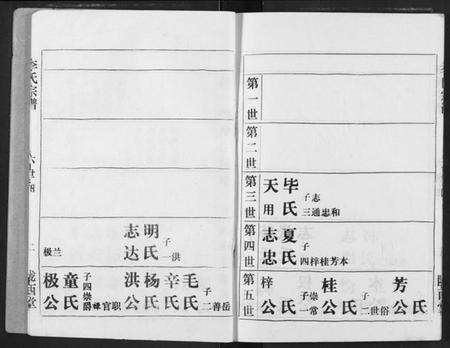 第一世
第二世
第三世
天用 毕氏 子三 志通忠和
第四世
志忠 夏氏 子四 梓桂芳本
第五世
梓公 氏 子一 崇常
桂公 氏 子二 世俗
芳公 氏
李氏宗谱
陇西堂
极兰
志达 明氏 子一 洪
极公 童氏 子四 崇爵禄官职
洪公 杨氏 辛氏 毛氏 子二 善岳